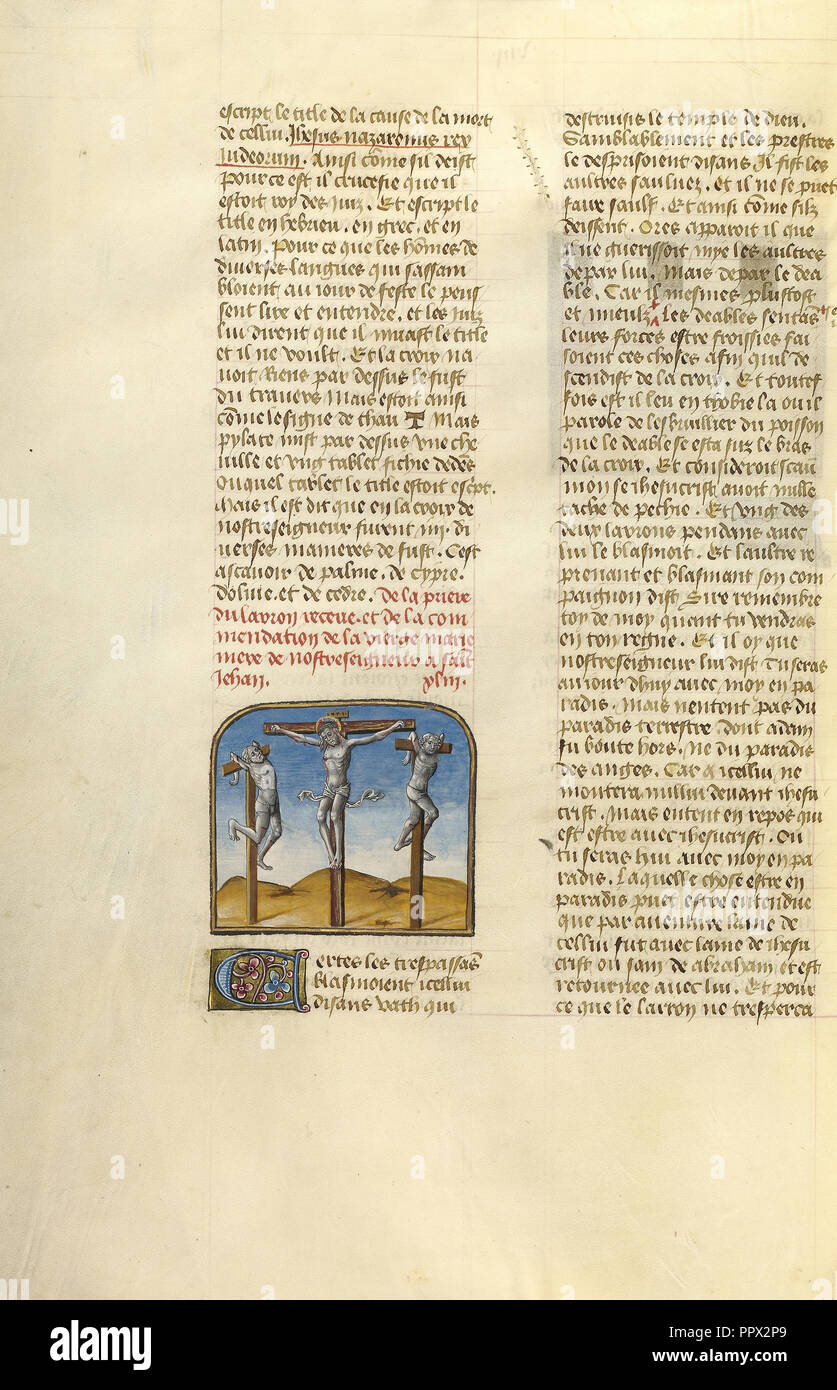 escript le title de la cause de la mort
de cellui. Jhesus nazarenus rex
Judeorum. Ainsi cōme sil deist
pour ce est il crucefie que il
estoit roy des iuiz. Et escript le
title en hebrieu. en grec. et en
latin. pour ce que les hōmes de
diverses langues qui sassam
bloient au iour de feste le peus
sent lire et entendre. et les iuiz
lui dirent que il muast le title
et il ne voult. Et la croix na
voit Riens par dessus le fust
du travers Mais estoit ainsi
cōme le signe de thau T Mais
pylate mist par dessus vne che
uille et vng tablet fichie dedēs
Ouquel tablet le title estoit escpt.
Mais il est dit que en la croix de
nostreseigneur furent iiii. di
verses manieres de fust. Cest
ascauoir de palme. de cypre.
dolive. et de cedre. De la priere
du larron receue. et de la com
mendation de la vierge marie
mere de nostreseigneur a saīt
Jehan. xliii.
Certes les trespassās
blasmoient icellui
disans vath qui
destruisis le temple de dieu.
Samblablement et les prestres
le desprisoient disans Il fist les
aultres sauluez. et il ne se puet
faire saulf. Et ainsi cōme silz
deissent. Ores apparoit il que
il ne guerissoit mye les aultres
de par lui. Mais de par le dea
ble. Car il mesmes plustost
et mieulz. Les deables sentās
leurs forces estre froissies fai
soient ces choses afin quil de
scendist de la croix. Et toutef
fois est il leu en thobie la ou il
parole de lesbruillier du poisson
que le deable se esta suz le bras
de la croix. Et consideroit scauī
mon se ihesucrist auoit nulle
tache de pechie. Et vng des
deux larrons pendans avec
lui le blasmoit. Et laultre re
prenant et blasmant son com
paignon dist Sire remembre
toy de moy quant tu vendras
en ton regne. Et il oy que
nostreseigneur lui dist Tu seras
au iour dhuy avec moy en pa
radis. Mais nentent pas du
paradis terrestre dont adam
fu boute hors. Ne du paradis
des anges. Car a icellui ne
montera nullui devant ihesu
crist. Mais entent en repos qui
est estre avec ihesucrist. Ou
tu seras hui avec moy en pa
radis. Laquelle chose estre en
paradis puet estre entendue
que par auenture lame de
cellui fut avec lame de ihesu
crist ou sain de abraham et est
retournee avec lui. Et pour
ce que le larron ne tresperca
alamy stock photo
alamy
Image ID: PPX2P9
www.alamy.com